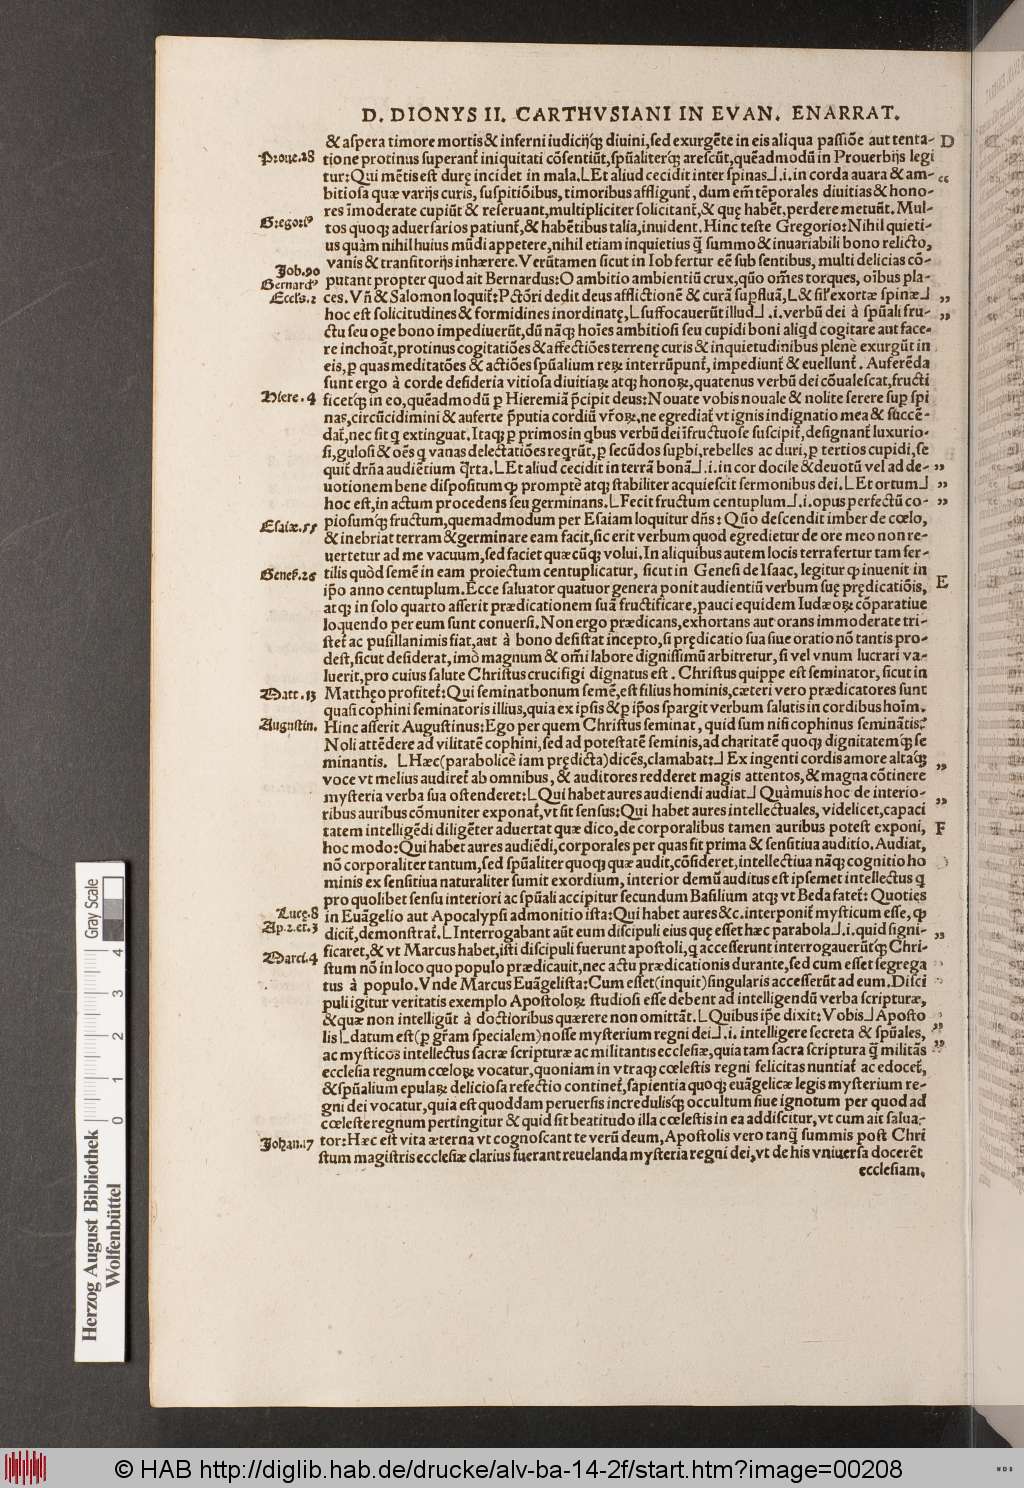 D. DIONYS II. CARTHVSIANI IN EVAN. ENARRAT.
& aspera timore mortis & inferni iudicijq; diuini, sed exurgẽte in eis aliqua passiõe aut tenta- D
Proue.28 tione protinus superant̃ iniquitati cõsentiũt, spũaliterq; arescũt, quẽadmodũ in Prouerbijs legi
tur: Qui mẽtis est durę incidet in mala. ⌊Et aliud cecidit inter spinas⌋ .i. in corda auara & am- „
bitiosa quæ varijs curis, suspitiõibus, timoribus affligunt̃, dum em̃ tẽporales diuitias & hono-
res ĩmoderate cupiũt & reseruant, multipliciter solicitant̃, & quę habẽt, perdere metuãt. Mul-
Gregoriꝰ tos quoq; aduersarios patiunt̃, & habẽtibus talia, inuident. Hinc teste Gregorio: Nihil quieti-
us quàm nihil huius mũdi appetere, nihil etiam inquietius q̃ summo & inuariabili bono relicto,
vanis & transitorijs inhærere. Verũtamen sicut in Iob fertur eẽ sub sentibus, multi delicias cõ-
Job.30 putant propter quod ait Bernardus: O ambitio ambientiũ crux, qũo om̃es torques, oĩbus pla-
Bernardꝰ
Eccls.2 ces. Vñ & Salomon loquit̃: Pctõri dedit deus afflictionẽ & curã supfluã, ⌊& sil̃ exortæ spinæ⌋ „
hoc est solicitudines & formidines inordinatę, ⌊suffocauerũt illud⌋ .i. verbũ dei à spũali fru- „
ctu seu ope bono impediuerũt, dũ nãq; hoĩes ambitiosi seu cupidi boni aliqd cogitare aut face-
re inchoãt, protinus cogitatiões & affectiões terrenę curis & inquietudinibus plenè exurgũt in
eis, ꝑ quas meditatões & actiões spũalium reꝝ interrũpunt̃, impediunt̃ & euellunt̃. Auferẽda
sunt ergo à corde desideria vitiosa diuitiaꝝ atq; honoꝝ, quatenus verbũ dei cõualescat, fructi
Hiere.4 ficetq; in eo, quẽadmodũ ꝑ Hieremiã p̃cipit deus: Nouate vobis nouale & nolite serere sup spi
nas, circũcidimini & auferte p̃putia cordiũ vr̃oꝝ, ne egrediat̃ vt ignis indignatio mea & succẽ-
dat̃, nec sit q extinguat. Itaq; ꝑ primos in qbus verbũ dei ĩfructuose suscipit̃, designant̃ luxurio-
si, gulosi & oẽs q vanas delectatiões reqrũt, ꝑ secũdos supbi, rebelles ac duri, ꝑ tertios cupidi, se
quit̃ dr̃ña audiẽtium q̃rta. ⌊Et aliud cecidit in terrã bonã⌋ .i. in cor docile & deuotũ vel ad de- „
uotionem bene dispositum ꝙ promptè atq; stabiliter acquiescit sermonibus dei. ⌊Et ortum⌋ „
hoc est, in actum procedens seu germinans. ⌊Fecit fructum centuplum⌋ .i. opus perfectũ co- „
Esaiæ.55 piosumq; fructum, quemadmodum per Esaiam loquitur dñs: Qũo descendit imber de cœlo,
& inebriat terram & germinare eam facit, sic erit verbum quod egredietur de ore meo non re-
uertetur ad me vacuum, sed faciet quæcũq; volui. In aliquibus autem locis terra fertur tam fer-
Genes.26 tilis quòd semẽ in eam proiectum centuplicatur, sicut in Genesi de Isaac, legitur ꝙ inuenit in
ip̃o anno centuplum. Ecce saluator quatuor genera ponit audientiũ verbum suę prędicatiõis, E
atq; in solo quarto asserit prædicationem suã fructificare, pauci equidem Iudæoꝝ cõparatiue
loquendo per eum sunt conuersi. Non ergo prædicans, exhortans aut orans immoderate tri-
stet̃ ac pusillanimis fiat, aut à bono desistat incepto, si prędicatio sua siue oratio nõ tantis pro-
dest, sicut desiderat, imò magnum & om̃i labore dignissimũ arbitretur, si vel vnum lucrari va-
luerit, pro cuius salute Christus crucifigi dignatus est. Christus quippe est seminator, sicut in
Matt.13 Matthęo profitet̃: Qui seminat bonum semẽ, est filius hominis, cæteri vero prædicatores sunt
quasi cophini seminatoris illius, quia ex ipsis & ꝑ ip̃os spargit verbum salutis in cordibus hoĩm.
Augustin. Hinc asserit Augustinus: Ego per quem Christus seminat, quid sum nisi cophinus seminãtis?
Noli attẽdere ad vilitatẽ cophini, sed ad potestatẽ seminis, ad charitatẽ quoq; dignitatemq; se
minantis. ⌊Hæc (parabolicè iam prędicta) dicẽs, clamabat:⌋ Ex ingenti cordis amore altaq; „
voce vt melius audiret̃ ab omnibus, & auditores redderet magis attentos, & magna cõtinere
mysteria verba sua ostenderet: ⌊Qui habet aures audiendi audiat⌋ Quàmuis hoc de interio- „
ribus auribus cõmuniter exponat̃, vt sit sensus: Qui habet aures intellectuales, videlicet, capaci
tatem intelligẽdi diligẽter aduertat quæ dico, de corporalibus tamen auribus potest exponi, F
hoc modo: Qui habet aures audiẽdi, corporales per quas fit prima & sensitiua auditio. Audiat,
nõ corporaliter tantum, sed spũaliter quoq; quæ audit, cõsideret, intellectiua nãq; cognitio ho
minis ex sensitiua naturaliter sumit exordium, interior demũ auditus est ipsemet intellectus q
pro quolibet sensu interiori ac spũali accipitur secundum Basilium atq; vt Beda fatet̃: Quoties
Lucę.8 in Euãgelio aut Apocalypsi admonitio ista: Qui habet aures &c. interponit̃ mysticum esse, ꝙ
Ap.2.et.3 dicit̃, demonstrat̃. ⌊Interrogabant aũt eum discipuli eius quę esset hæc parabola⌋ .i. quid signi- „
Marci.4 ficaret, & vt Marcus habet, isti discipuli fuerunt apostoli, q accesserunt interrogauerũtq; Chri-
stum nõ in loco quo populo prædicauit, nec actu prædicationis durante, sed cum esset segrega
tus à populo. Vnde Marcus Euãgelista: Cum esset (inquit) singularis accesserũt ad eum. Disci
puli igitur veritatis exemplo Apostoloꝝ studiosi esse debent ad intelligendũ verba scripturæ,
& quæ non intelligũt à doctioribus quærere non omittãt. ⌊Quibus ip̃e dixit: Vobis⌋ Aposto
lis ⌊datum est (ꝑ gr̃am specialem) nosse mysterium regni dei⌋ .i. intelligere secreta & spũales, „
ac mysticos intellectus sacræ scripturæ ac militantis ecclesiæ, quia tam sacra scriptura q̃ militãs „
ecclesia regnum cœloꝝ vocatur, quoniam in vtraq; cœlestis regni felicitas nuntiat̃ ac edocet̃,
& spũalium epulaꝝ deliciosa refectio continet̃, sapientia quoq; euãgelicæ legis mysterium re-
gni dei vocatur, quia est quoddam peruersis incredulisq; occultum siue ignotum per quod ad
cœleste regnum pertingitur & quid sit beatitudo illa cœlestis in ea addiscitur, vt cum ait salua-
Johan.17 tor: Hæc est vita æterna vt cognoscant te verũ deum, Apostolis vero tanq̃ summis post Chri
stum magistris ecclesiæ clarius fuerant reuelanda mysteria regni dei, vt de his vniuersa docerẽt
ecclesiam.
Herzog August Bibliothek
Wolfenbüttel
0 1 2 3 4
Gray Scale
© HAB http://diglib.hab.de/drucke/alv-ba-14-2f/start.htm?image=00208